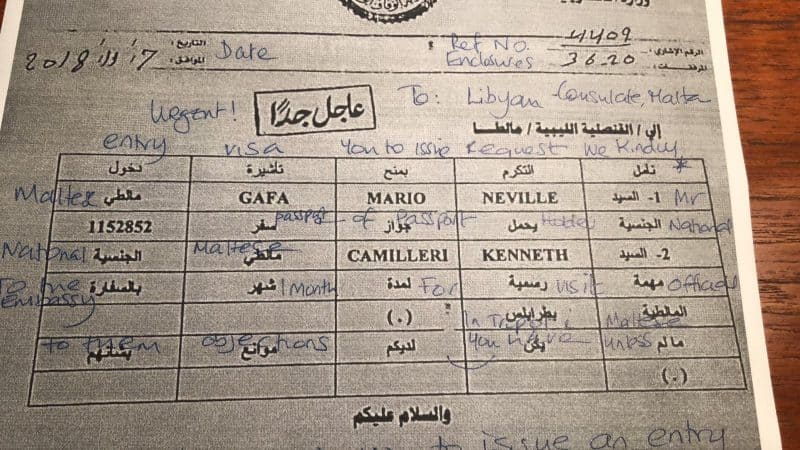 الرقم الإشاري: 4409
Ref No.
التاريخ:
Date
المرفقات: 36.20
Enclosures
الموافق: 17 / أول / 2018
To: Libyan Consulate, Malta
عاجل جدًا
Urgent!
إلى / القنصلية الليبية / مالطا
entry visa you to issue request We Kindly *
نأمل التكرم بمنح تأشيرة دخول
1- السيد NEVILLE MARIO GAFA مالطي
Maltese Mr
الجنسية يحمل جواز سفر 1152852
passport of passport Holder National
2- السيد KENNETH CAMILLERI مالطي الجنسية
National Maltese
مهمة رسمية لمدة شهر بالسفارة
To the Embassy 1 month For visit Official
المالطية بطرابلس (.)
In Tripoli Maltese
ما لم يكن لديكم موانع بشأنهم
to them objections you have unless
(.)
والسلام عليكم
to issue an entry